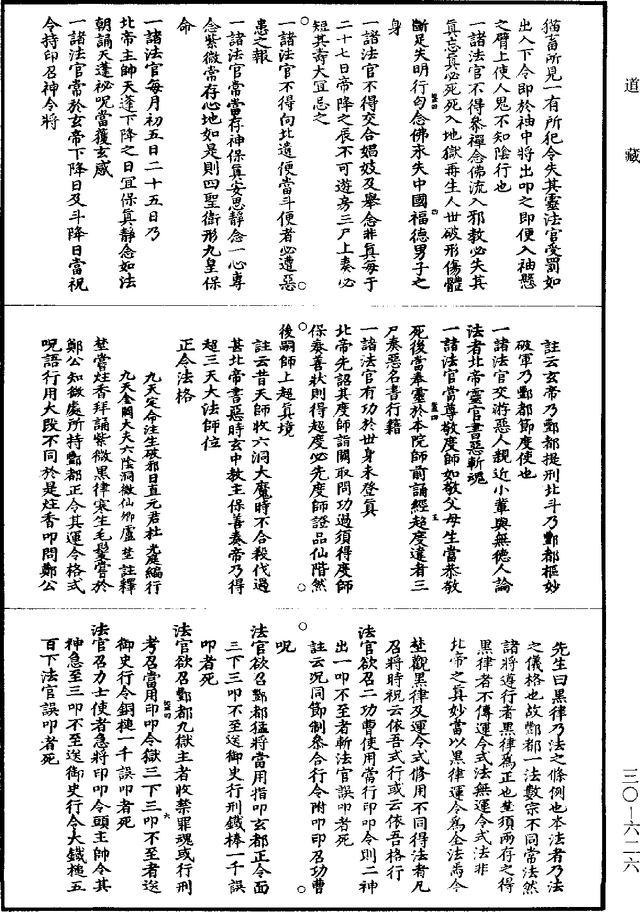 道藏
猫畜所見一有所犯令失其靈法官受罰如
出入下令即於袖中將出叩之即便入袖懸
之臂上使人鬼不知陰行也
一諸法官不得叅禪念佛流入邪教必失其
真忘真必死死入地獄再生人世破形傷體
斷足失明行匄念佛永失中國福德男子之
身
一諸法官不得交合娼妓及舉念非真每于
二十七日帝降之辰不可遊房三尸上奏必
短其壽大宜忌之
一諸法官不得向北遺便當斗便者必遭惡
患之報
一諸法官常當存神保真安思靜念一心專
念紫微常存心地如是則四聖衛形九皇保
命
一諸法官每月初五日二十五日乃
北帝主帥天蓬下降之日宜保真靜念如法
朝誦天蓬祕呪當獲玄感
一諸法官當於玄帝下降日及斗降日當祝
令持印召神令將
註云玄帝乃酆都提刑北斗乃酆都樞妙
破軍乃酆都節度使也
一諸法官交游惡人親近小輩與無德人論
法者北帝靈官書惡斬魂
一諸法官當尊敬度師如敬父母生當恭敬
死後當奉靈於本院師前誦經超度違者三
尸奏惡名書行籍
一諸法官有功於世身未登真
北帝先詔其度師詣闕取問功過須得度師
保奏善狀則得超度必先度師證品仙階然
後嗣師上超真境
註云昔天師收六洞大魔時不合殺伐過
甚北帝書惡時玄中教主保善奏帝乃得
超三天大法師位
正令法格
九天定命注生破邪日直元君杜光庭編行
九天金闕大夫六陰洞微仙卿盧埜註釋
埜嘗炷香拜誦紫微黑律寒生毛髮嘗於
鄭公知微處所持酆都正令其運令格式
呪語行用大段不同於是炷香叩問鄭公
先生曰黑律乃法之條例也本法者乃法
之儀格也故酆都一法數宗不同當法然
諸將遵行者黑律為正也埜須兩存之得
黑律者不傳運令式法無運令式法非
北帝之真妙當以黑律運令為全法焉今
埜觀黑律及運令式脩用不同得法者凡
召將時祝云依吾式行或云依吾格行
法官欲召二功曹使用當行印叩令則二神
出一叩不至者斬法官誤叩者死
註云況同節制叅合行令附叩印召功曹
呪
法官欲召酆都猛將當用指叩玄都正令面
三下三叩不至送御史行刑鐵棒一千誤
叩者死
法官欲召酆都九獄主者收禁罪魂或行刑
考召當用印叩令獄三下三叩不至者送
御史行令銅槌一千誤叩者死
法官召力士使者急將印叩令頭主帥令其
神急至三叩不至送御史行令大鐵槌五
百下法官誤叩者死
三〇—六二六